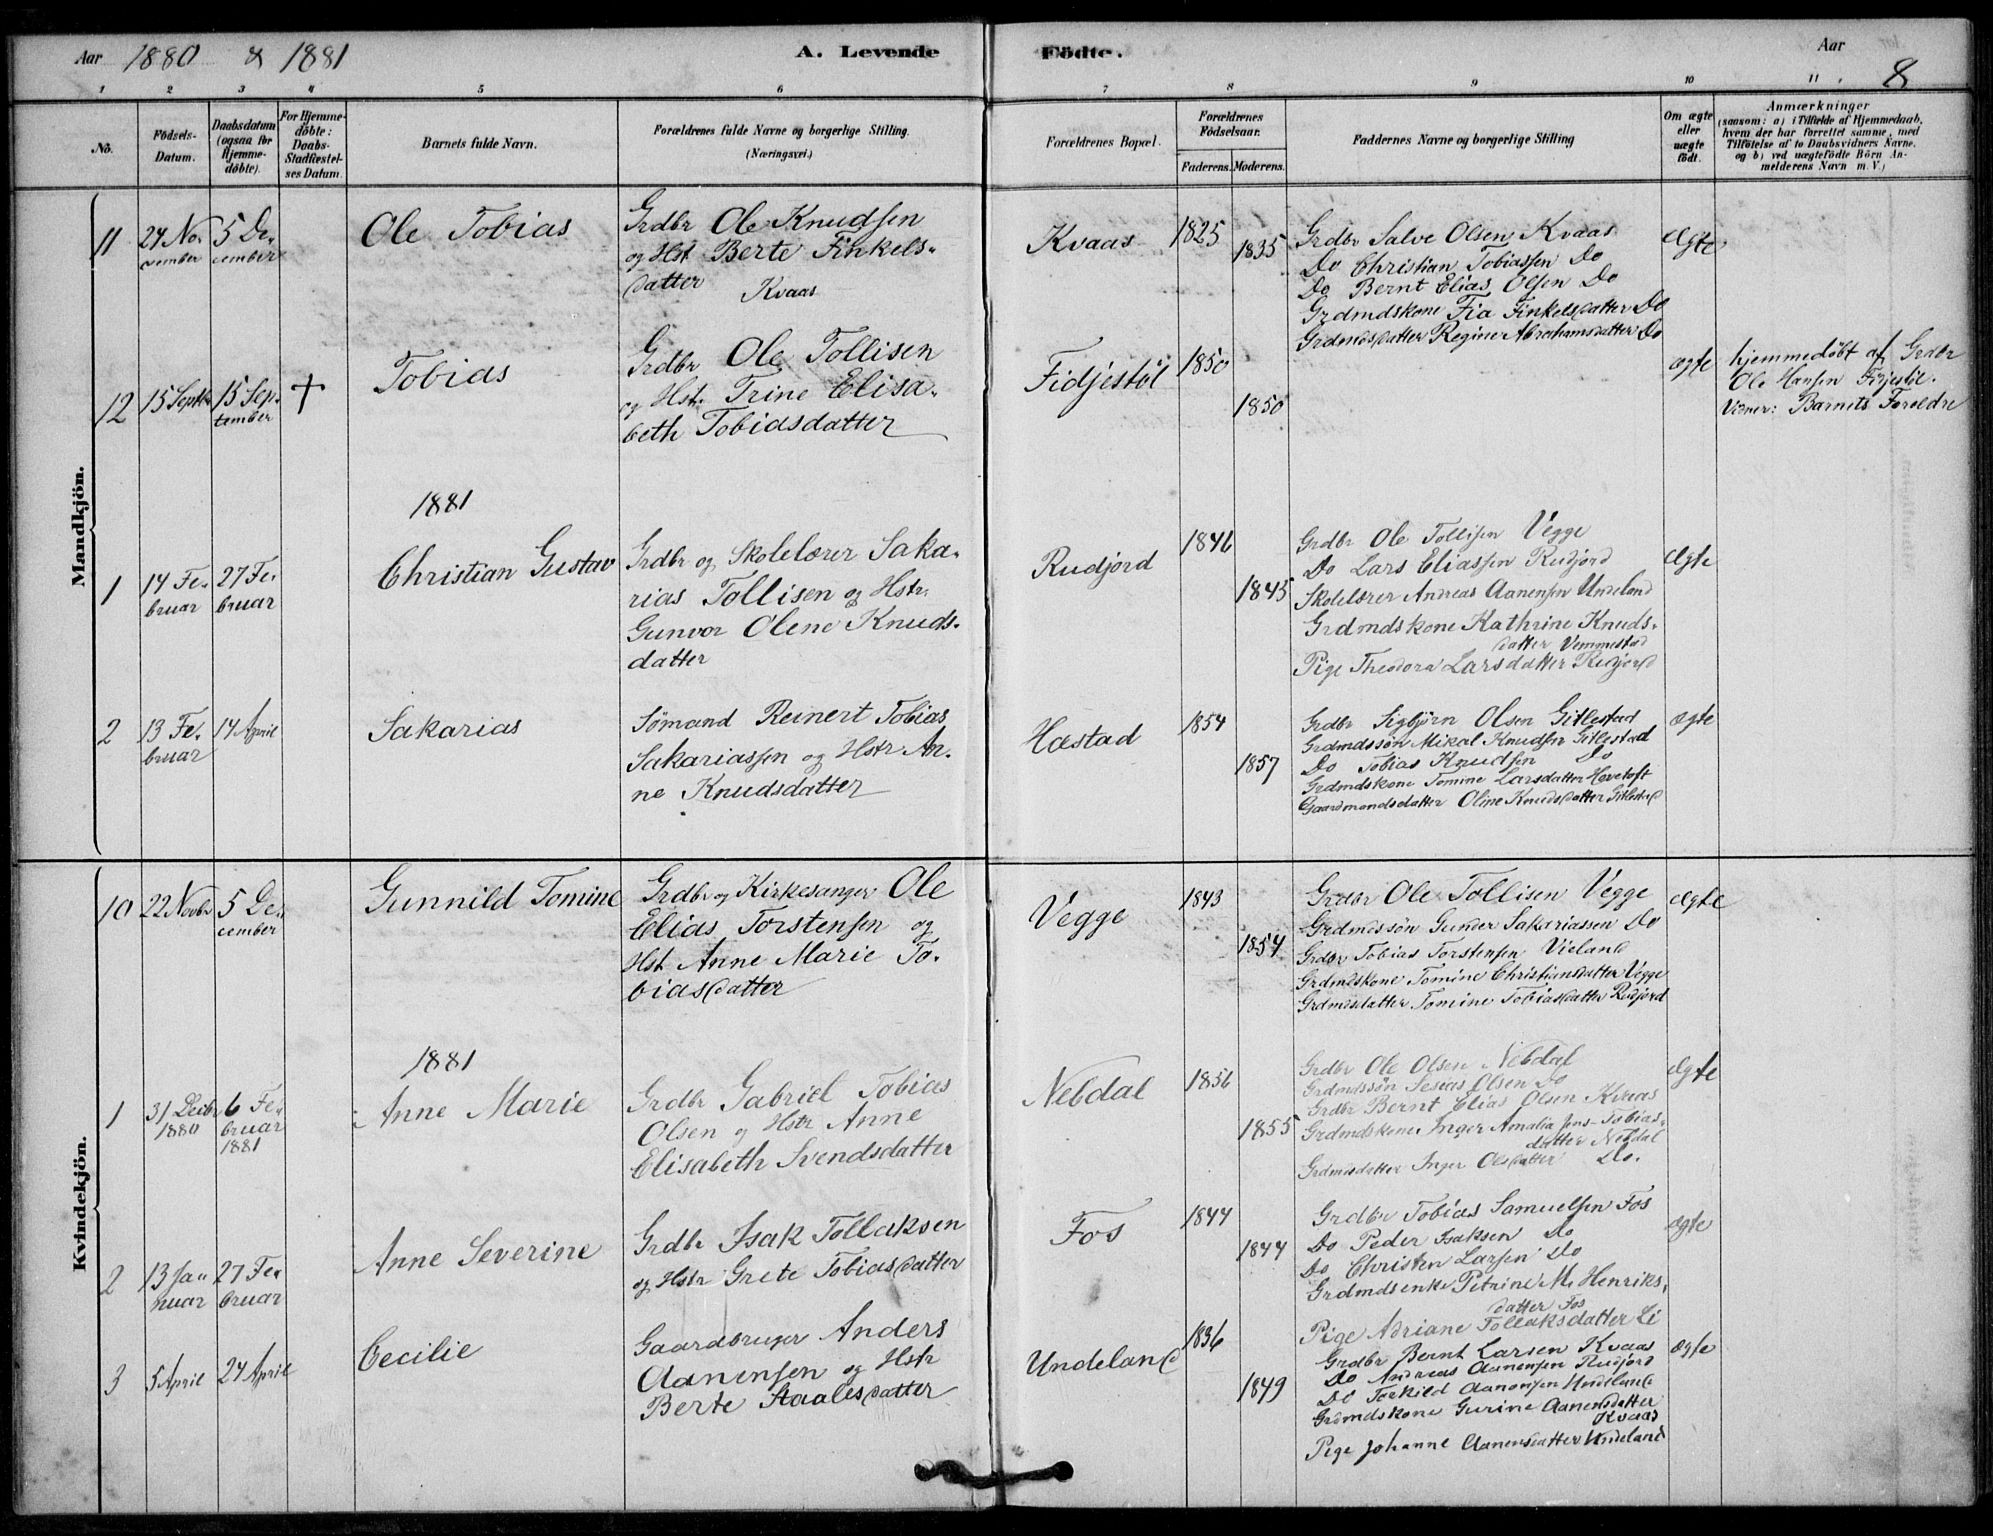 Aar 1880 & 1881 A. Levende Födte. Aar 8
1 2 3 4 5 6 7 8 9 10 11
No.
Födsels-
Datum.
Daabsdatum
(ogsaa for
Hjemme-
döbte).
For Hjemme-
döbte:
Daabs-
Stadfæstel-
ses Datum.
Barnets fulde Navn.
Forældrenes fulde Navne og borgerlige Stilling.
(Næringsvei.)
Forældrenes Bopæl.
Forældrenes
Födselsaar.
Faderens. Moderens.
Faddernes Navne og borgerlige Stilling
Om ægte
eller
uægte
födt.
Anmærkninger
(saasom: a) i Tilfælde af Hjemmedaab,
hvem der har forrettet samme, med
Tilföielse af to Daabsvidners Navne,
og b) ved uægtefödte Börn An-
melderens Navn m. V.)
Mandkjön.
11
24 No-
vember
5 De-
cember
Ole Tobias
Grdbr Ole Knudsen
og Hst Berte Finkels-
datter
Kvaas
Kvaas
1825
1835
Grdbr Salve Olsen Kvaas
Do Christian Tobiassen Do
Do Bernt Elias Olsen Do
Grdmdskone Fia Finkelsdatter Do
Grdmdsdatter Regine Abrahamsdatter Do
Ægte
12
15 Septb
15 Sep-
tember
+
Tobias
Grdbr Ole Tollisen
og Hstr. Trine Elisa-
beth Tobiasdatter
Fidjestöl
1850
1850
ægte
hjemmedöbt af Grdbr
Ole Hansen Fidjestöl.
Vidner: Barnets Foreldre
1881
1
14 Fe-
bruar
27 Fe-
bruar
Christian Gustav
Grdbr og Skolelærer Saka-
rias Tollisen og Hstr.
Gunvor Olene Knuds-
datter
Rudjord
1846
1845
Grdbr Ole Tollisen Vegge
Do Lars Eliassen Rudjord
Skolelærer Andreas Aanensen Undeland
Grdmdskone Kathrine Knuds-
datter Vemmestad
Pige Theodora Larsdatter Rudjord
Ægte
2
13 Fe-
bruar
14 April
Sakarias
Sømand Reinert Tobias
Sakariassen og Hstr An-
ne Knudsdatter
Hæstad
1854
1857
Grdbr Sigbjörn Olsen Gitlestad
Grdmdssön Mikal Knudsen Gitlestad
Do Tobias Knudsen Do
Grdmdskone Tomine Larsdatter Hovetoft
Gaardmandsdatter Oline Knudsdatter Gitlestad
ægte
Kvindekjön.
10
22 Novbr
5 De-
cember
Gunnild Tomine
Grdbr og Kirkesanger Ole
Elias Torstensen og
Hst Anne Marie To-
biasdatter
Vegge
1843
1854
Grdbr Ole Tollisen Vegge
Grdmdssön Gunder Sakariassen Do
Grdbr Tobias Torstensen Vieland
Grdmdskone Tomine Christiansdatter Vegge
Grdmdsdatter Tomine Tobiasdatter Rudjord
Ægte
1881
1
31 Decbr
1880
6 Fe-
bruar
1881
Anne Marie
Grdbr Gabriel Tobias
Olsen og Hstr Anne
Elisabeth Svendsdatter
Nebdal
1856
1855
Grdbr Ole Olsen Nebdal
Grdmdssön Olsen Do
Grdbr Bernt Elias Olsen Kvaas
Grdmdskone Inger Amalia Tobias-
datter Nebdal
Grdmdsdatter Inger Olsdatter Do.
Ægte
2
13 Ja-
nuar
27 Fe-
bruar
Anne Severine
Grdbr Isak Tollaksen
og Hstr Grete Tobiasdatter
Fos
1844
1844
Grdbr Tobias Samuelsen Fos
Do Peder Isaksen Do
Do Christen Larsen Do
Grdmdsenke Petrine M. Henriks-
datter Fos
Pige Adriane Tollaksdatter Ei
ægte
3
5 April
24 April
Cecilie
Gaardbruger Anders
Aanensen og Hstr
Berte Staalesdatter
Undeland
1836
1849
Grdbr Bernt Larsen Kvaas
Do Andreas Aanensen Rudjord
Do Torkild Aanonsen Undeland
Grdmdskone Gurine Aanensdatter
Kvaas
Pige Johanne Aanensdatter Undeland
ægte